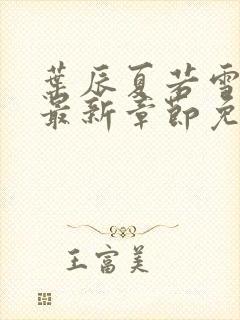 葉辰夏若雪
最新章節免
王富美